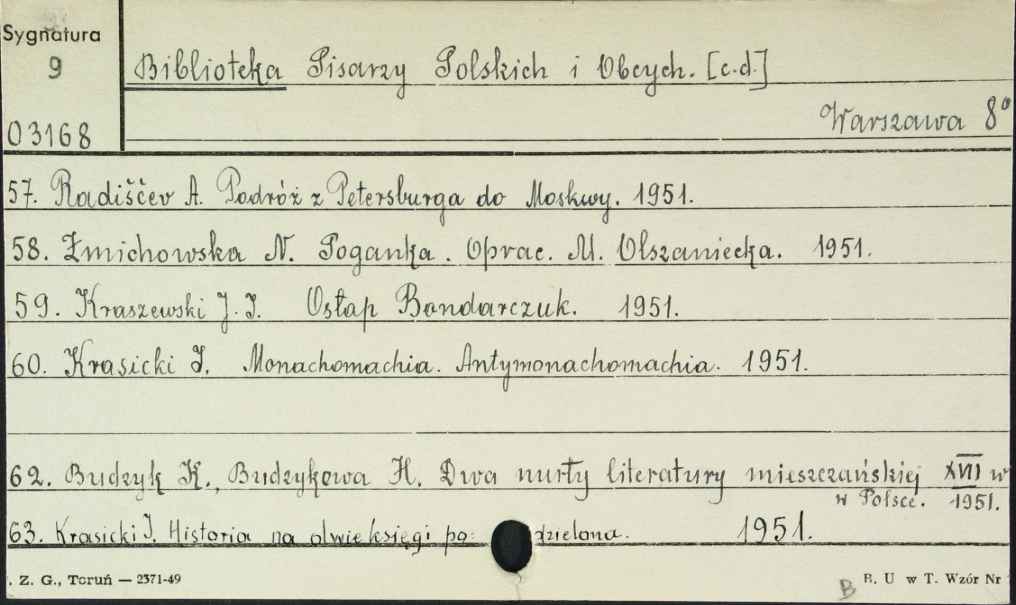 Sygnatura
9
03168
Biblioteka Pisarzy Polskich i Obcych. [c.d.]
Warszawa 8°
57. Radiščev A. Podróż z Petersburga do Moskwy. 1951.
58. Żmichowska N. Poganka. Oprac. M. Olszaniecka. 1951.
59. Kraszewski J. I. Ostap Bondarczuk. 1951.
60. Krasicki I. Monachomachia. Antymonachomachia. 1951.
62. Budzyk K., Budzykowa H. Dwa nurty literatury mieszczańskiej XVII w
w Polsce. 1951.
63. Krasicki I. Historia na dwie księgi po dzielona. 1951.
. Z. G., Toruń — 2371-49
B
B. U w T. Wzór Nr